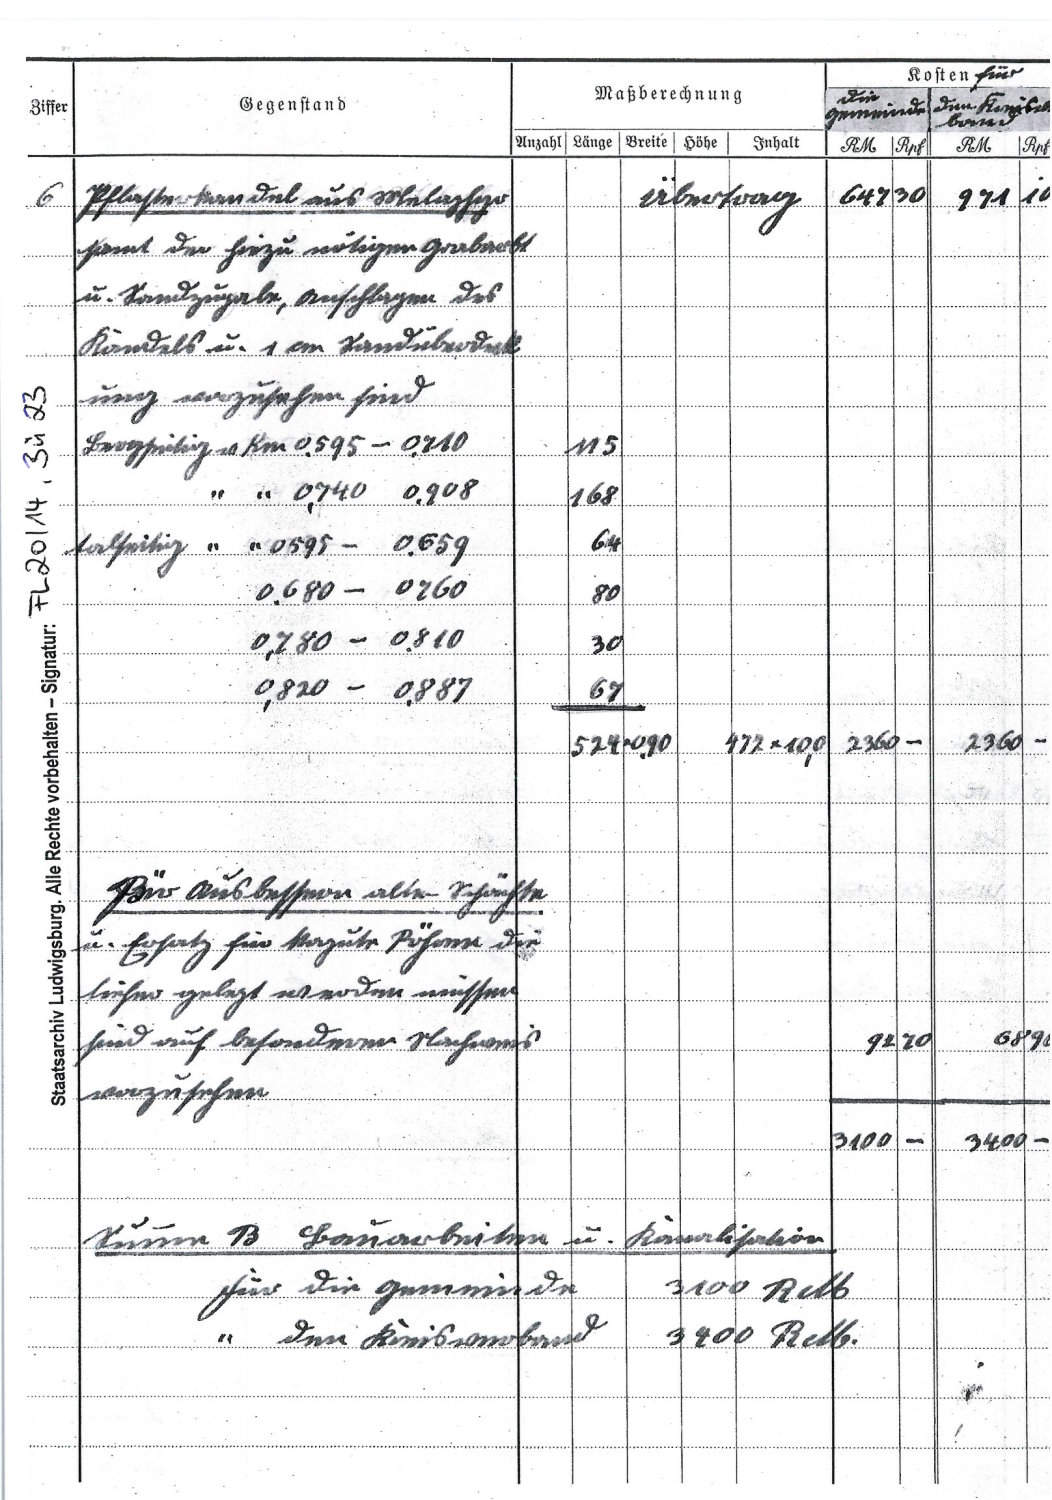 Ziffer Gegenstand Maßberechnung Kosten für
die Gemeinde den Kreisverband
Anzahl Länge Breite Höhe Inhalt RM Rpf RM Rpf
6 Pflasterkandel aus Melaphyr Übertrag 647 30 971 10
samt der hiezu nötigen Grabarbt
u. Sandzugabe, Anschlagen des
Kandels u. 1 cm Sandüberdeck
ung vorzusehen sind
Bergseitig v Km 0,595 – 0,710 115
" " 0,740 0,908 168
talseitig " " 0595 – 0.659 64
0.680 – 0760 80
0,780 – 0.810 30
0,820 – 0,887 67
524 × 0,90 472 × 10,0 2360 – 2360 –
Für Ausbessern alter Schächte
u. Ersatz für Röhren die
tiefer gelegt werden müssen
sind auf besonderen Nachweis 92 70 68 90
vorzusehen
3100 – 3400 –
Summe B Bauarbeiten u. Kanalisation
für die Gemeinde 3100 RM
" den Kreisverband 3400 RM.
Staatsarchiv Ludwigsburg. Alle Rechte vorbehalten – Signatur: FL 20/14, Bü 23